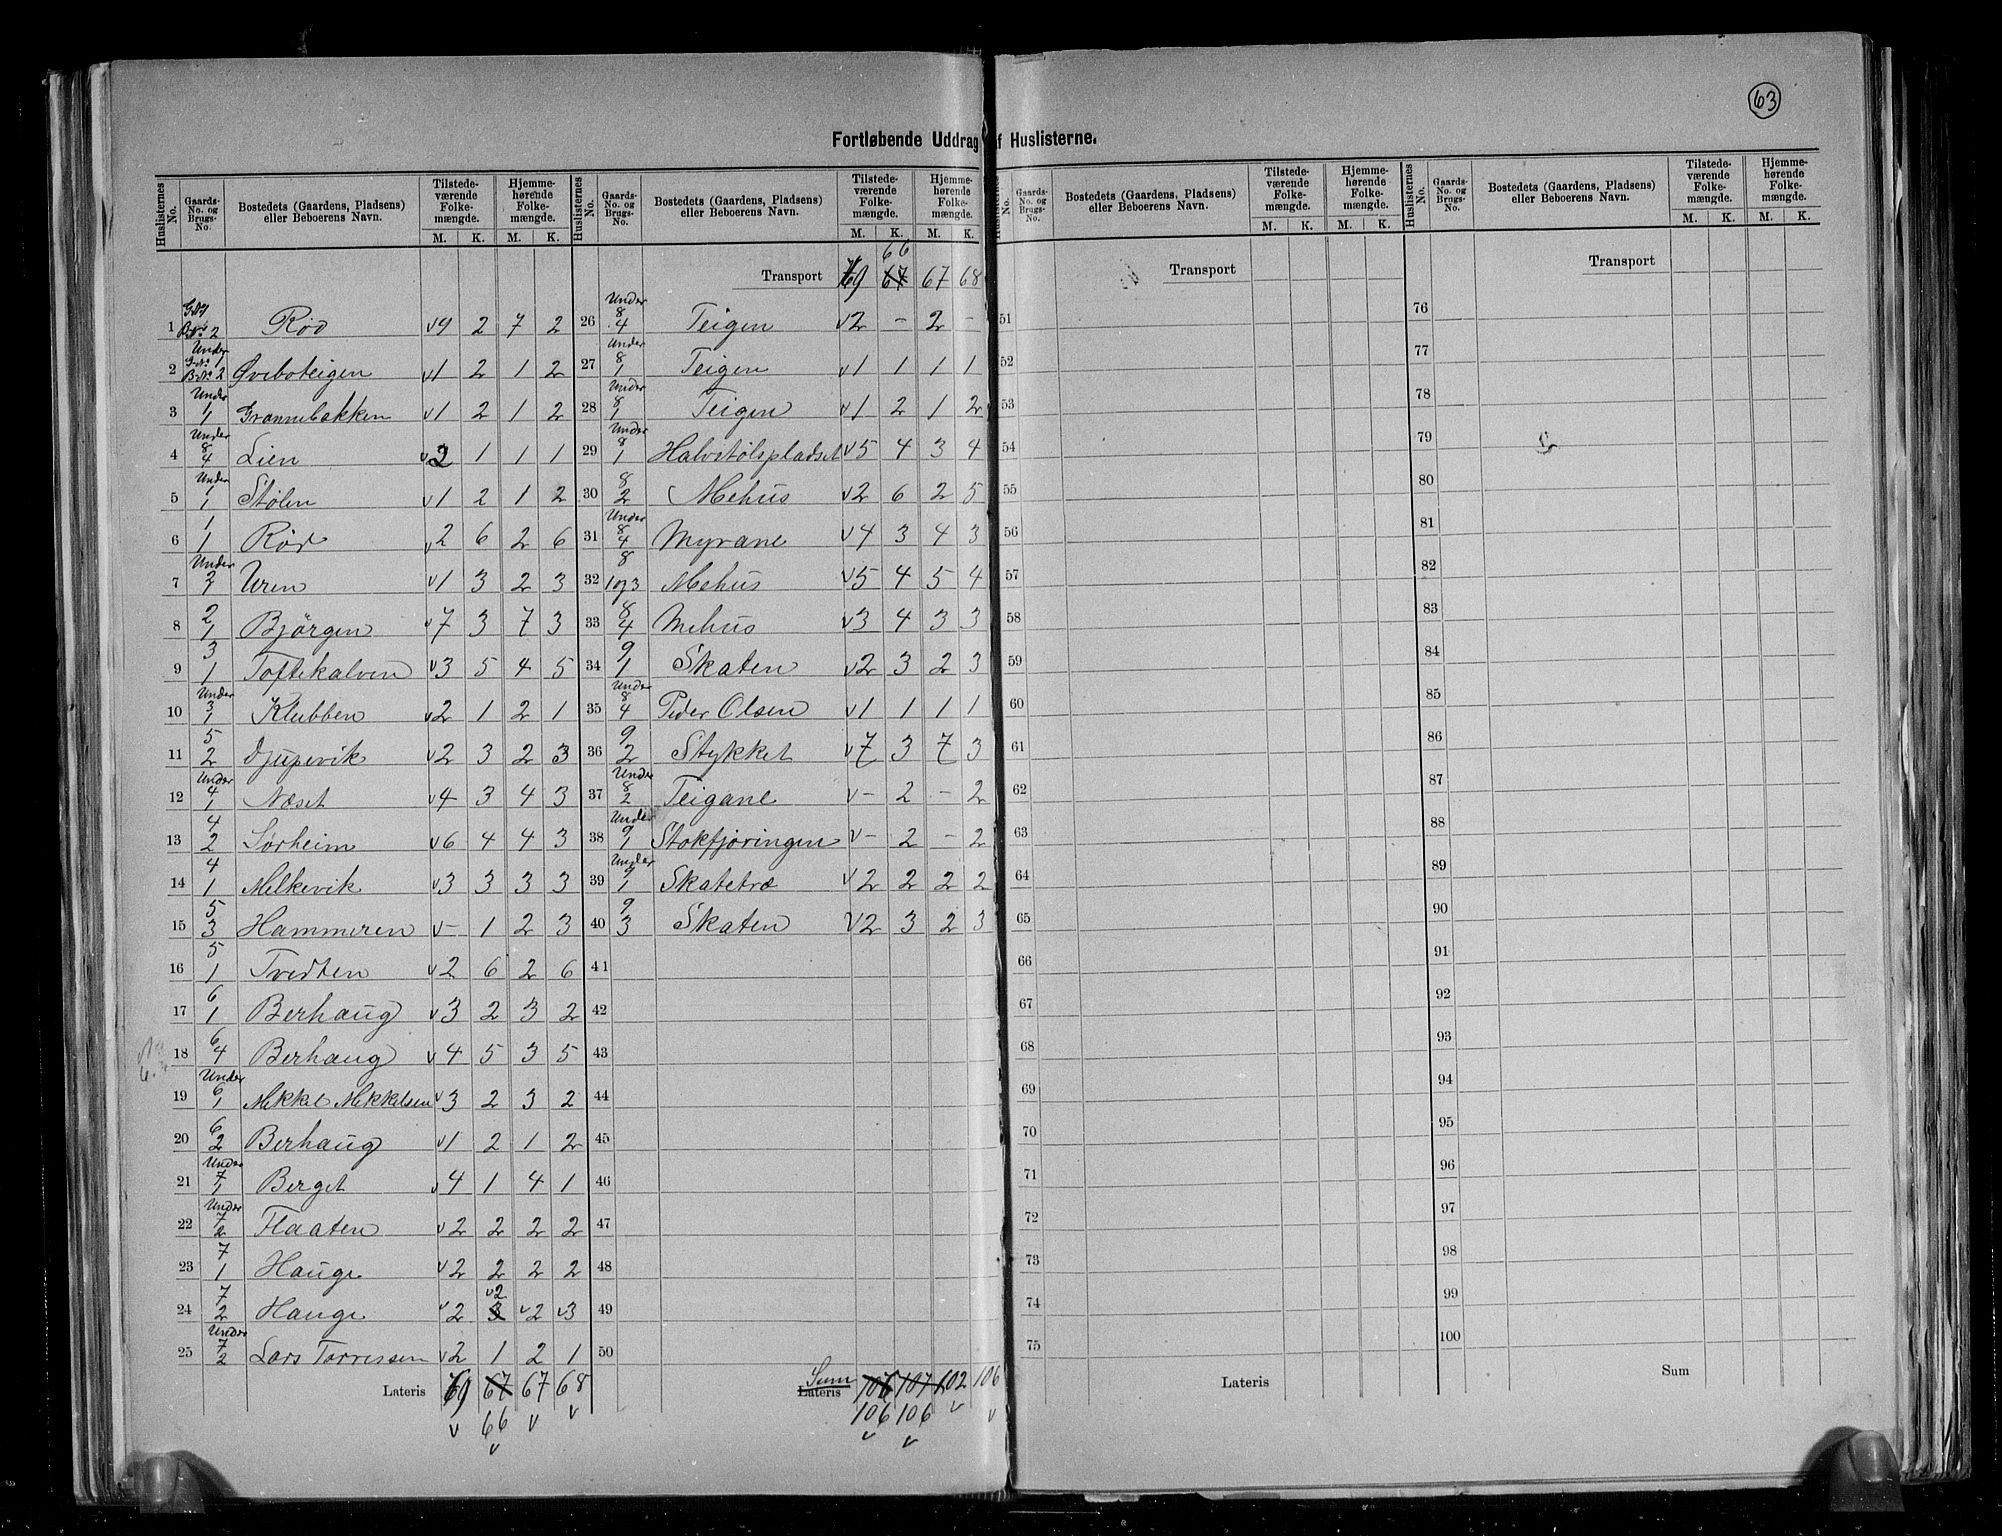 63
Fortløbende Uddrag af Huslisterne.
Huslisternes No. Gaards-No. og Brugs-No. Bostedets (Gaardens, Pladsens) eller Beboerens Navn. Tilstedeværende Folkemængde. M. K. Hjemmehørende Folkemængde. M. K.
1 G.No 1 B.No 2 Rød v9 2 7 2
2 Under G.No 1 B.No 2 Øvreboteigen v1 2 1 2
3 Under 1 1 Grønnebækken v1 2 1 2
4 Under 8 4 Lien v2 1 1 1
5 Under 1 1 Stølen v1 2 1 2
6 1 1 Rød v2 6 2 6
7 Under 2 1 Uren v1 3 2 3
8 2 1 Bjørgen v7 3 7 3
9 3 1 Toftekalven v3 5 4 5
10 Under 3 1 Klubben v2 1 2 1
11 5 2 Djupevik v2 3 2 3
12 Under 4 1 Næset v4 3 4 3
13 4 2 Sørheim v6 4 4 3
14 4 1 Melkevik v3 3 3 3
15 5 3 Hammeren v- 1 2 3
16 5 1 Tvedten v2 6 2 6
17 6 1 Berhaug v3 2 3 2
18 6 4 Berhaug v4 5 3 5
19 Under 6 1 Mekkel Mekkelsen v3 2 3 2
20 6 2 Berhaug v1 2 1 2
21 Under 7 1 Berget v4 1 4 1
22 Under 7 2 Flaaten v2 2 2 2
23 7 1 Hauge v2 2 2 2
24 7 2 Hauge v2 3 v2 v2 v3
25 Under 7 2 Lars Torressen v2 1 2 1
Lateris 69 67 67 68
v 66 v v
v
Huslisternes No. Gaards-No. og Brugs-No. Bostedets (Gaardens, Pladsens) eller Beboerens Navn. Tilstedeværende Folkemængde. M. K. Hjemmehørende Folkemængde. M. K.
66
Transport 69 67 67 68
26 Under 8 4 Teigen v2 - 2 -
27 Under 8 1 Teigen v1 1 1 1
28 Under 8 1 Teigen v1 2 1 2
29 Under 8 1 Halvstølspladset v5 4 3 4
30 8 2 Mehus v2 6 2 5
31 Under 8 4 Myrane v4 3 4 3
32 8 1 og 3 Mehus v5 4 5 4
33 8 4 Mehus v3 4 3 3
34 9 1 Skaten v2 3 2 3
35 Under 8 4 Peder Olsen v1 1 1 1
36 9 2 Stykket v7 3 7 3
37 Under 8 2 Teigane v- 2 - 2
38 Under 9 1 Stokfjøringen v- 2 - 2
39 Under 9 1 Skatetræ v2 2 2 2
40 9 3 Skaten v2 3 2 3
41
42
43
44
45
46
47
48
49
50
Sum
Lateris 106 107 102 106
106 106 v v
v v
Huslisternes No. Gaards-No. og Brugs-No. Bostedets (Gaardens, Pladsens) eller Beboerens Navn. Tilstedeværende Folkemængde. M. K. Hjemmehørende Folkemængde. M. K.
Transport
51
52
53
54
55
56
57
58
59
60
61
62
63
64
65
66
67
68
69
70
71
72
73
74
75
Lateris
Huslisternes No. Gaards-No. og Brugs-No. Bostedets (Gaardens, Pladsens) eller Beboerens Navn. Tilstedeværende Folkemængde. M. K. Hjemmehørende Folkemængde. M. K.
Transport
76
77
78
79
80
81
82
83
84
85
86
87
88
89
90
91
92
93
94
95
96
97
98
99
100
Sum